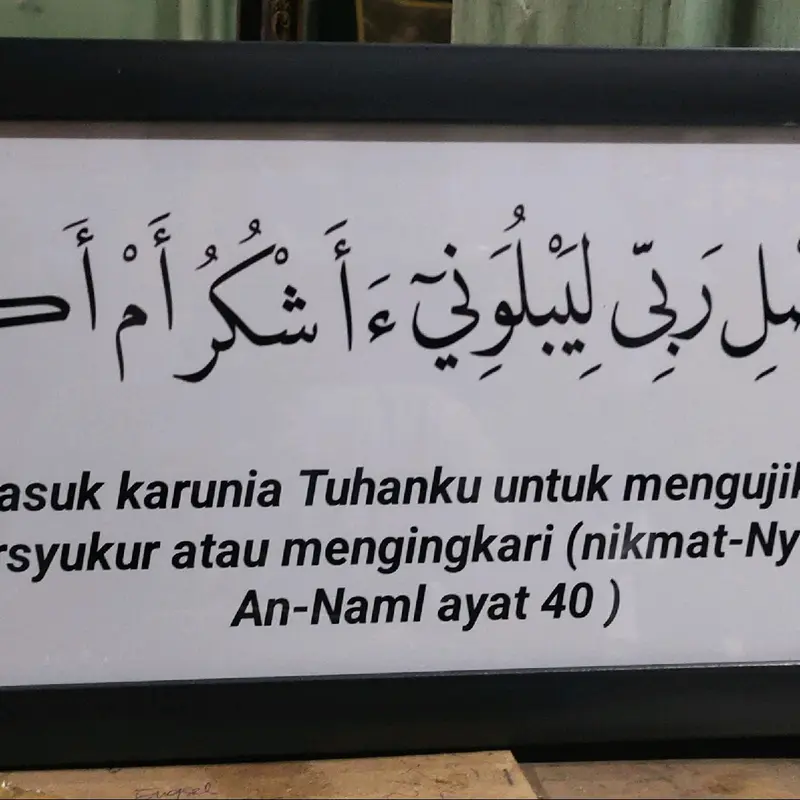 ضْلِ رَبِّى لِيَبْلُوَنِيٓ ءَأَشْكُرُ أَمْ أَك
asuk karunia Tuhanku untuk menguji
rsyukur atau mengingkari (nikmat-Ny
An-Naml ayat 40 )